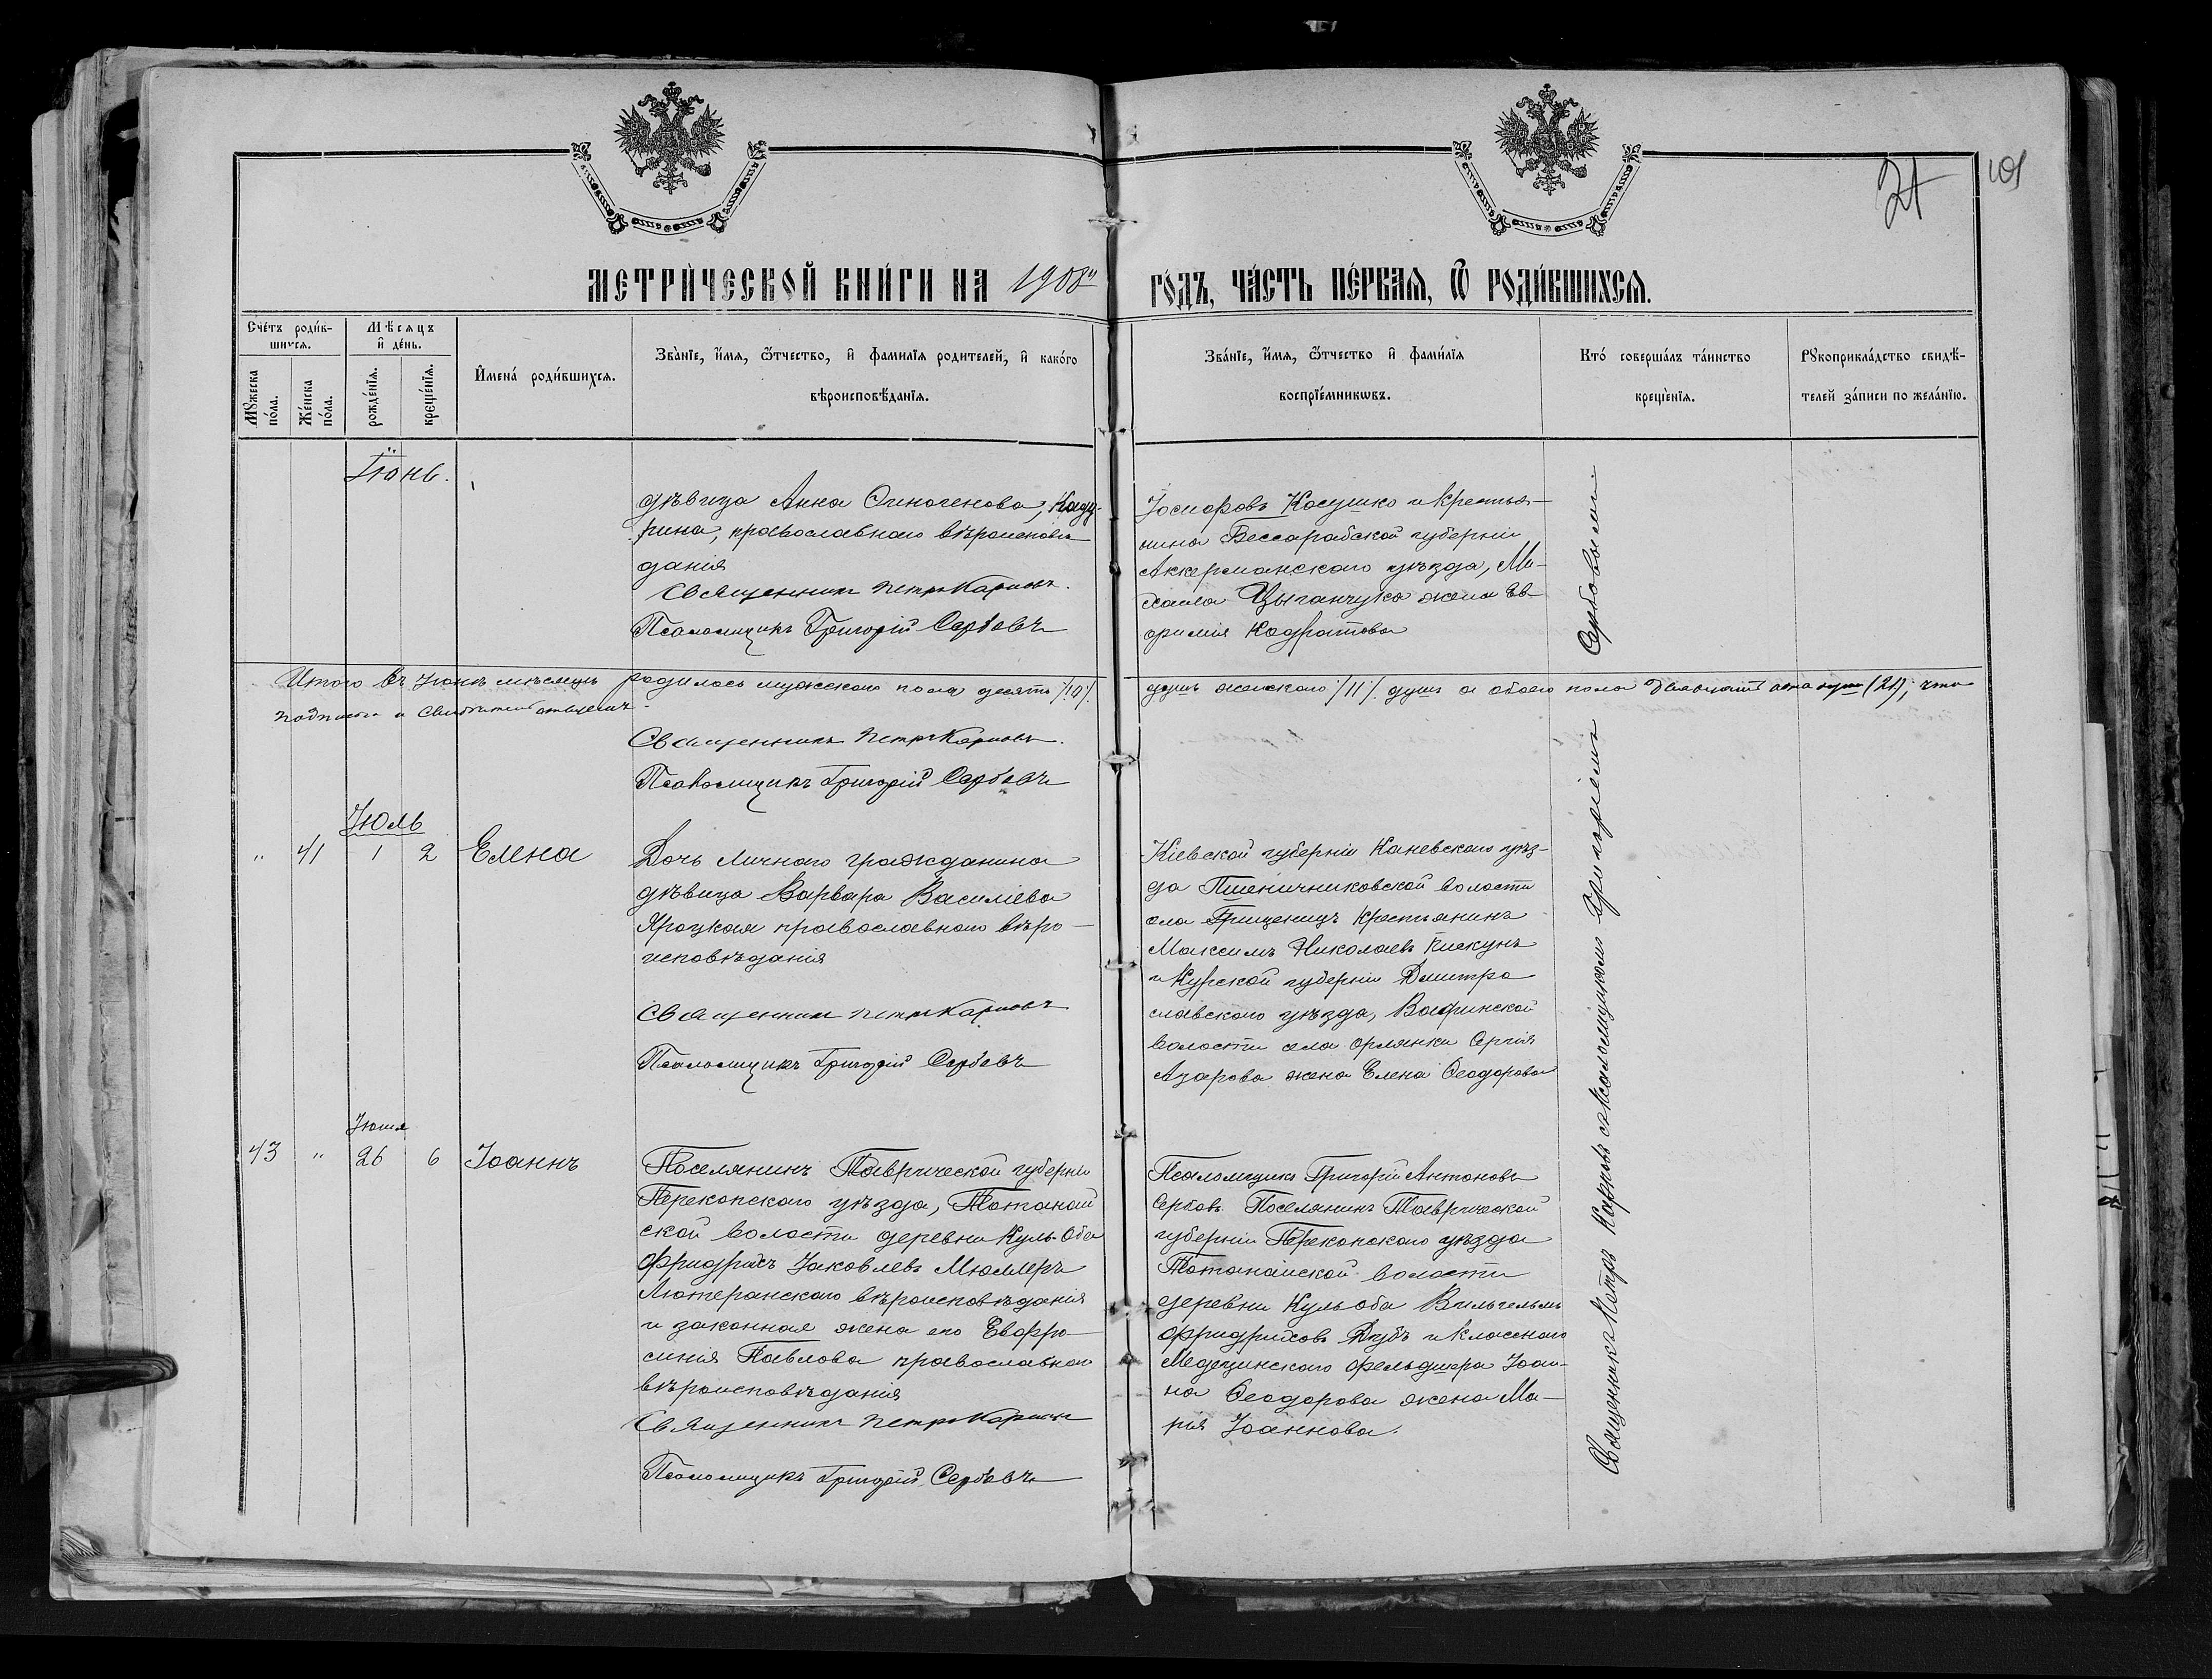 21
101
МЕТРИ́ЧЕСКОЙ КНИ́ГИ НА 1908й
ГО́ДЪ, ЧА́СТЬ ПЕ́РВАЯ, Ѿ РОДИ́ВШИХСЯ.
Сче́тъ роди́в-
шихся.
Мѣсяцъ
и҆ де́нь.
Му́жеска
по́ла.
Же́нска
по́ла.
рожде́нїя.
креще́нїя.
И҆мена́ роди́вшихся.
Зва́нїе, и҆́мя, ѻ҆́тчество, и҆ фами́лїя родителей, и҆ како́го
вѣроисповѣ́данїя.
Зва́нїе, и҆́мя, ѻ҆́тчество и҆ фами́лїя
воспрїе́мникѡвъ.
Кто́ соверша́лъ та́инство
креще́нїя.
Рꙋкоприкла́дство свидѣ́-
телей за́писи по жела́нїю.
Іюнь.
дѣвица Анна
рина, православнаго вѣроисповѣ
данія
Священникъ Петръ Карповъ.
Псаломщикъ Григорій Сербовъ
Косушко и крестья-
нина Бессарабской губерніи
Аккерманскаго уѣзда, Ми-
хаила Цыганчука жена Ев-
фимія Кодратова
Итого въ Іюнѣ мѣсяцѣ родилось мужескаго пола десять /10/.
душъ женскаго /11/. душъ а обоего пола двадцать одна душа (21); что
подписомъ и свидѣтельствуемъ.
Священникъ Петръ Карповъ.
Псаломщикъ Григорій Сербовъ
Іюль
" 41 1 2 Елена
Дочь личнаго гражданина
дѣвица Варвара Василіева
Яроцкая православнаго вѣро-
исповѣданія
Священникъ Петръ Карповъ
Псаломщикъ Григорій Сербовъ
Кіевской губерніи Каневскаго уѣз-
да Пшеничниковской волости
села Грищенецъ крестьянинъ
Максимъ Николаевъ Пискунъ
и Курской губерніи Дмитра
славского уѣзда,
волости села Орлянки Сергія
Азарова жена Елена Ѳеодорова
Іюня
43 " 26 6 Іоаннъ
Поселянинъ Таврической губерніи
Перекопскаго уѣзда, Тотанай
ской волости деревни Куль-Оба
Фридрихъ Іаковлевъ Мюллеръ
Лютеранскаго вѣроисповѣданія
и законная жена его Евфро-
синія Павлова православнаго
вѣроисповѣданія
Священникъ Петръ Карповъ
Псаломщикъ Григорій Сербовъ
Псаломщикъ Григорій Антоновъ
Сербовъ Поселянинъ Таврической
губерніи Перекопскаго уѣзда
Тотанайской волости
деревни Кульоба Вильгельмъ
Фридриховъ Дубъ и класснаго
Медецинскаго фельдшера Іоан-
на Ѳеодорова жена Ма-
рія Іоаннова.
Священникъ Петръ Карповъ съ псаломщикомъ Григоріемъ Сербовымъ